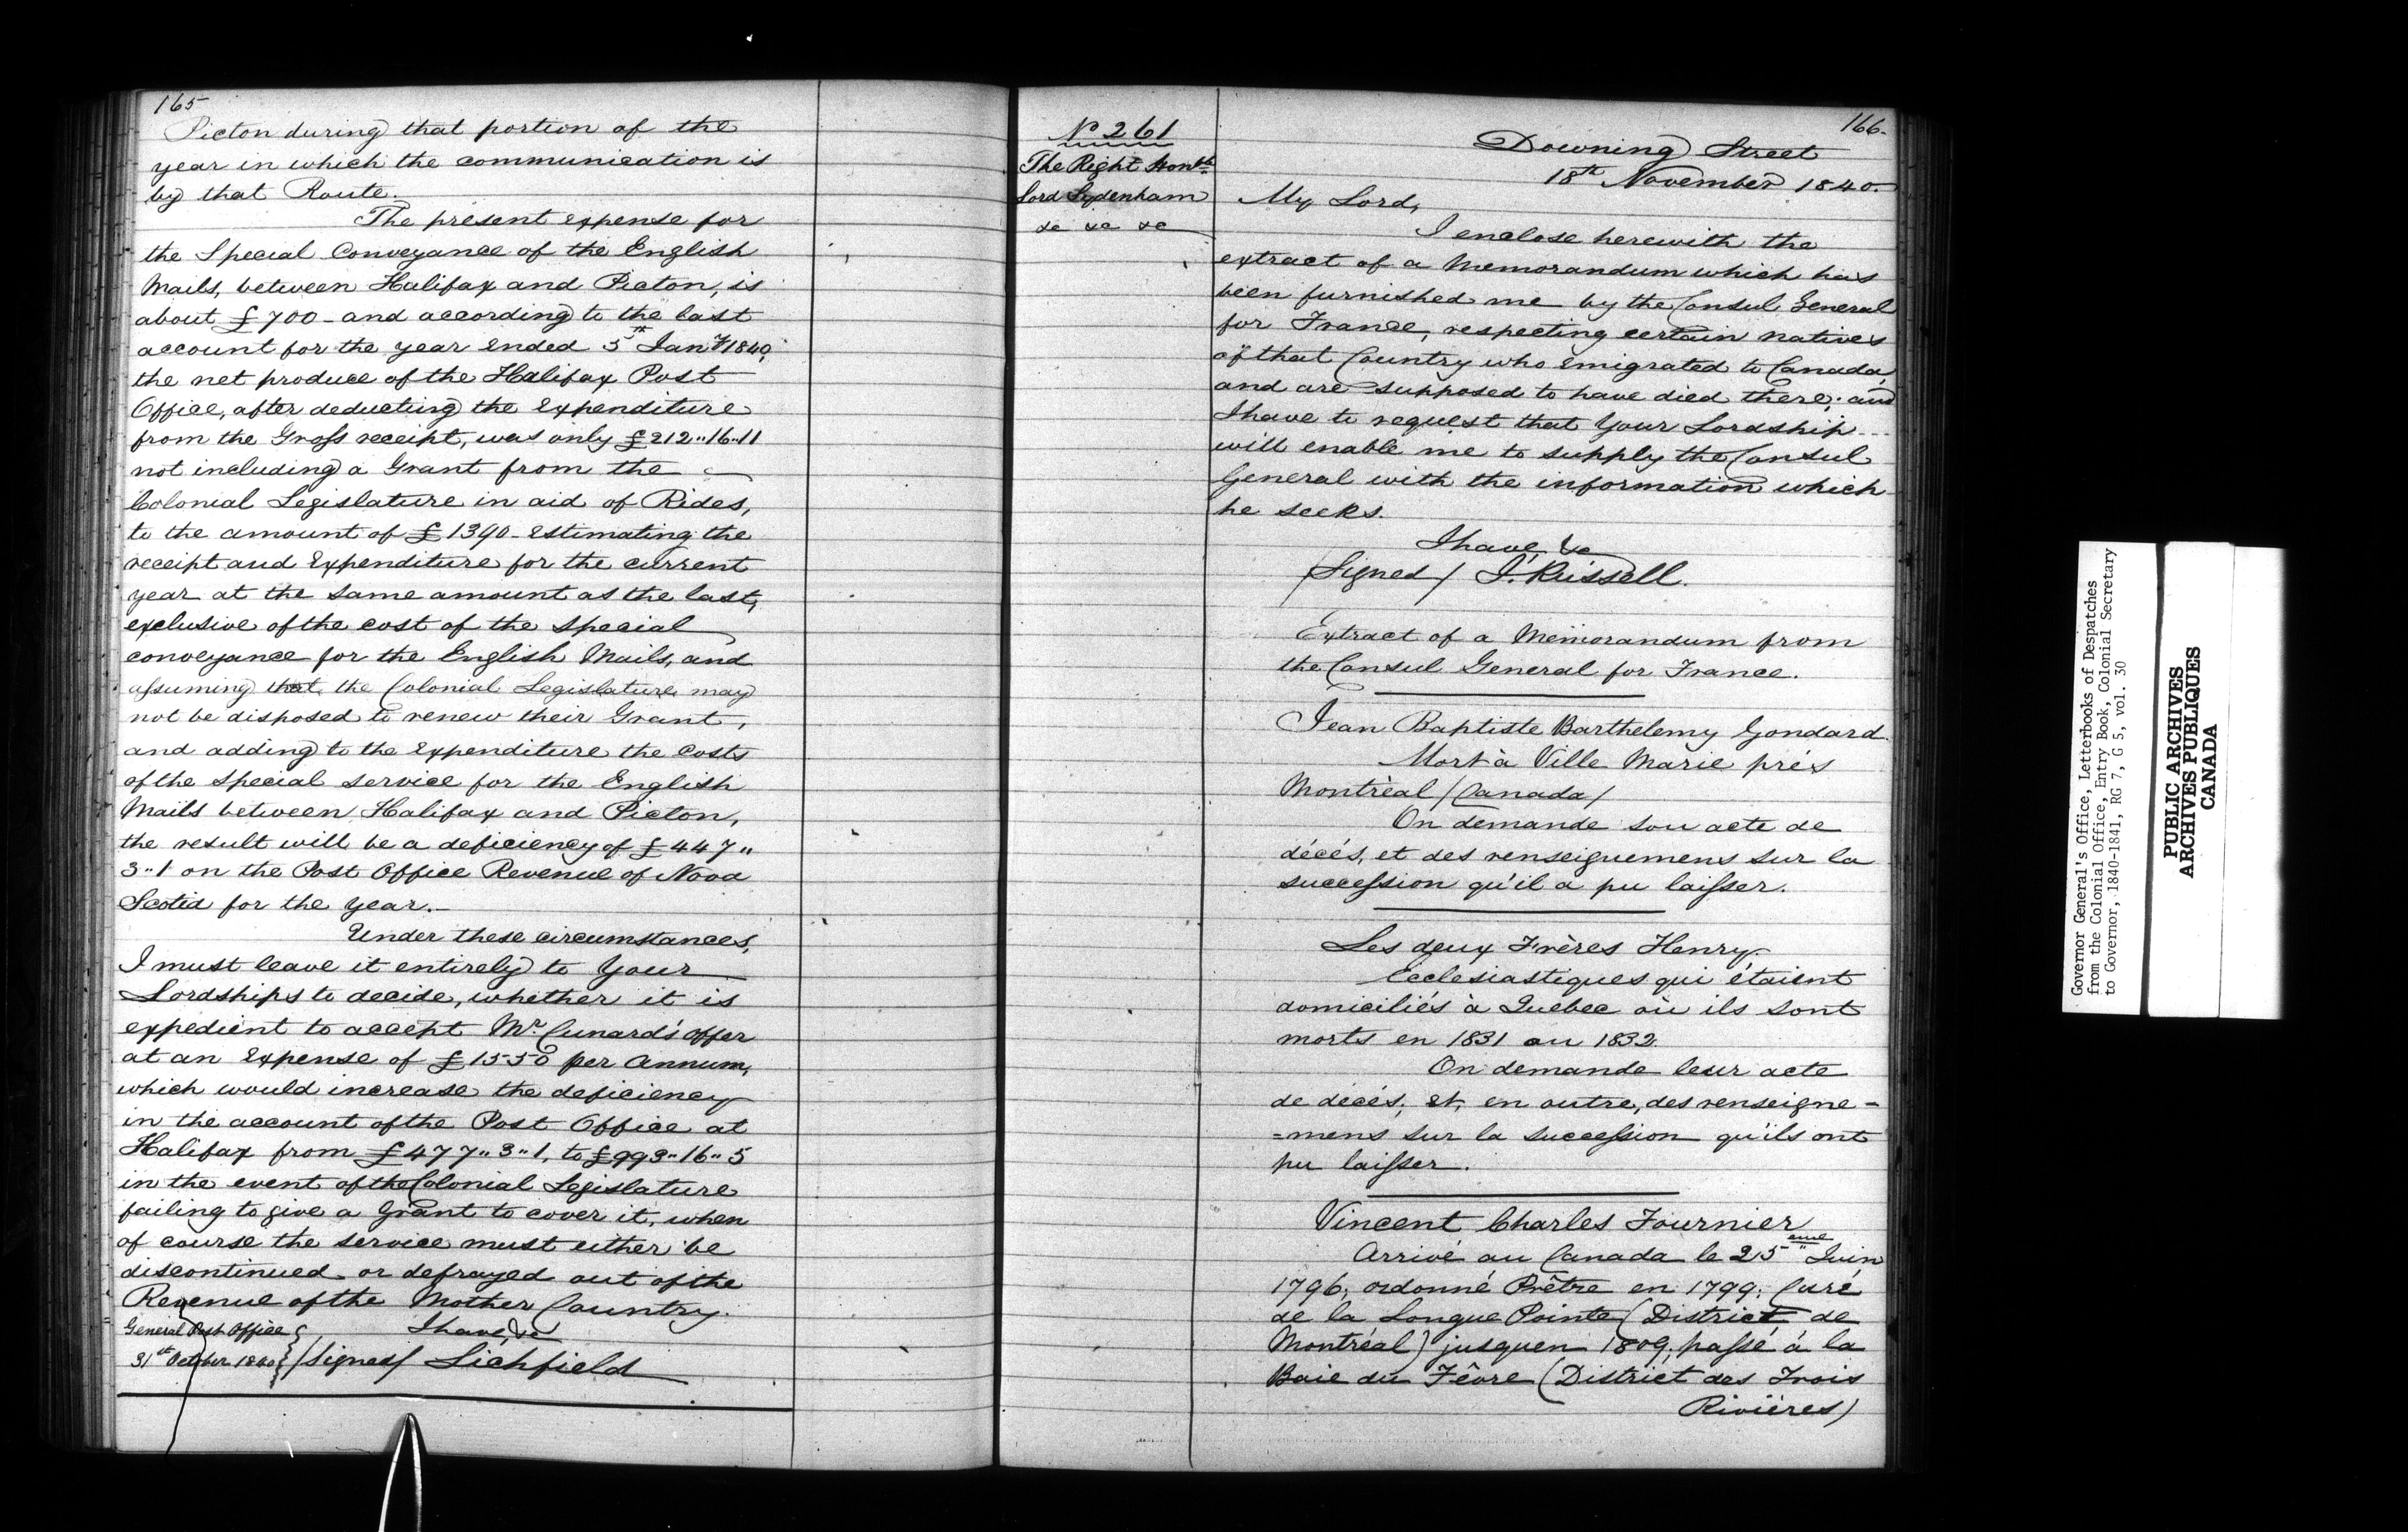 165
Picton during that portion of the
year in which the communication is
by that Route.
The present expense for
the Special Conveyance of the English
Mails, between Halifax and Picton, is
about £700 - and according to the last
account for the year ended 5th Jany 1840,
the net produce of the Halifax Post
Office, after deducting the Expenditure
from the Gross receipt, was only £212"16"11
not including a Grant from the
Colonial Legislature in aid of Rides,
to the amount of £1390 - Estimating the
receipt and Expenditure for the current
year at the same amount as the last,
exclusive of the cost of the special
conveyance for the English Mails, and
assuming that the Colonial Legislature may
not be disposed to renew their Grant,
and adding to the Expenditure the costs
of the special service for the English
Mails between Halifax and Picton,
the result will be a deficiency of £447"
3"1 on the Post Office Revenue of Nova
Scotia for the year.
Under these circumstances,
I must leave it entirely to Your
Lordships to decide, whether it is
expedient to accept Mr. Cunard's offer
at an Expense of £1550 per Annum,
which would increase the deficiency
in the account of the Post Office at
Halifax from £477"3"1, to £993"16"5
in the event of the Colonial Legislature
failing to give a Grant to cover it, when
of course the service must either be
discontinued or defrayed out of the
Revenue of the Mother Country.
I have &c
General Post Office
31st October 1840 } (Signed) Lichfield
166.
No 261
The Right Honble
Lord Sydenham
&c &c &c
Downing Street
18th November 1840.
My Lord,
I enclose herewith the
extract of a Memorandum which has
been furnished me by the Consul General
for France, respecting certain natives
of that Country who emigrated to Canada,
and are supposed to have died there; and
I have to request that Your Lordship
will enable me to supply the Consul
General with the information which
he seeks.
I have &c
(Signed) J. Russell.
Extract of a Memorandum from
the Consul General for France.
Jean Baptiste Barthelemy Gondard.
Mort à Ville Marie prés
Montrèal (Canada)
On demande sou acte de
décés, et des renseignemens sur la
succession qu'il a pu laisser.
Les deux Frères Henry.
Ecclesiastiques qui étaient
domiciliés à Quebec où ils sont
morts en 1831 au 1832.
On demande leur acte
de décés, et, en outre, des renseigne=
=mens sur la succession qu'ils ont
pu laisser.
Vincent Charles Fournier
Arrivé au Canada le 25eme Juin
1796, ordonné Prêtre en 1799; Curé
de la Longue Pointe (District de
Montréal) jusquen 1809; passé á la
Baie du Fêvre (District des Trois
Rivières)
Governor General's Office, Letterbooks of Despatches
from the Colonial Office, Entry Book, Colonial Secretary
to Governor, 1840-1841, RG 7, G 5, vol. 30
PUBLIC ARCHIVES
ARCHIVES PUBLIQUES
CANADA